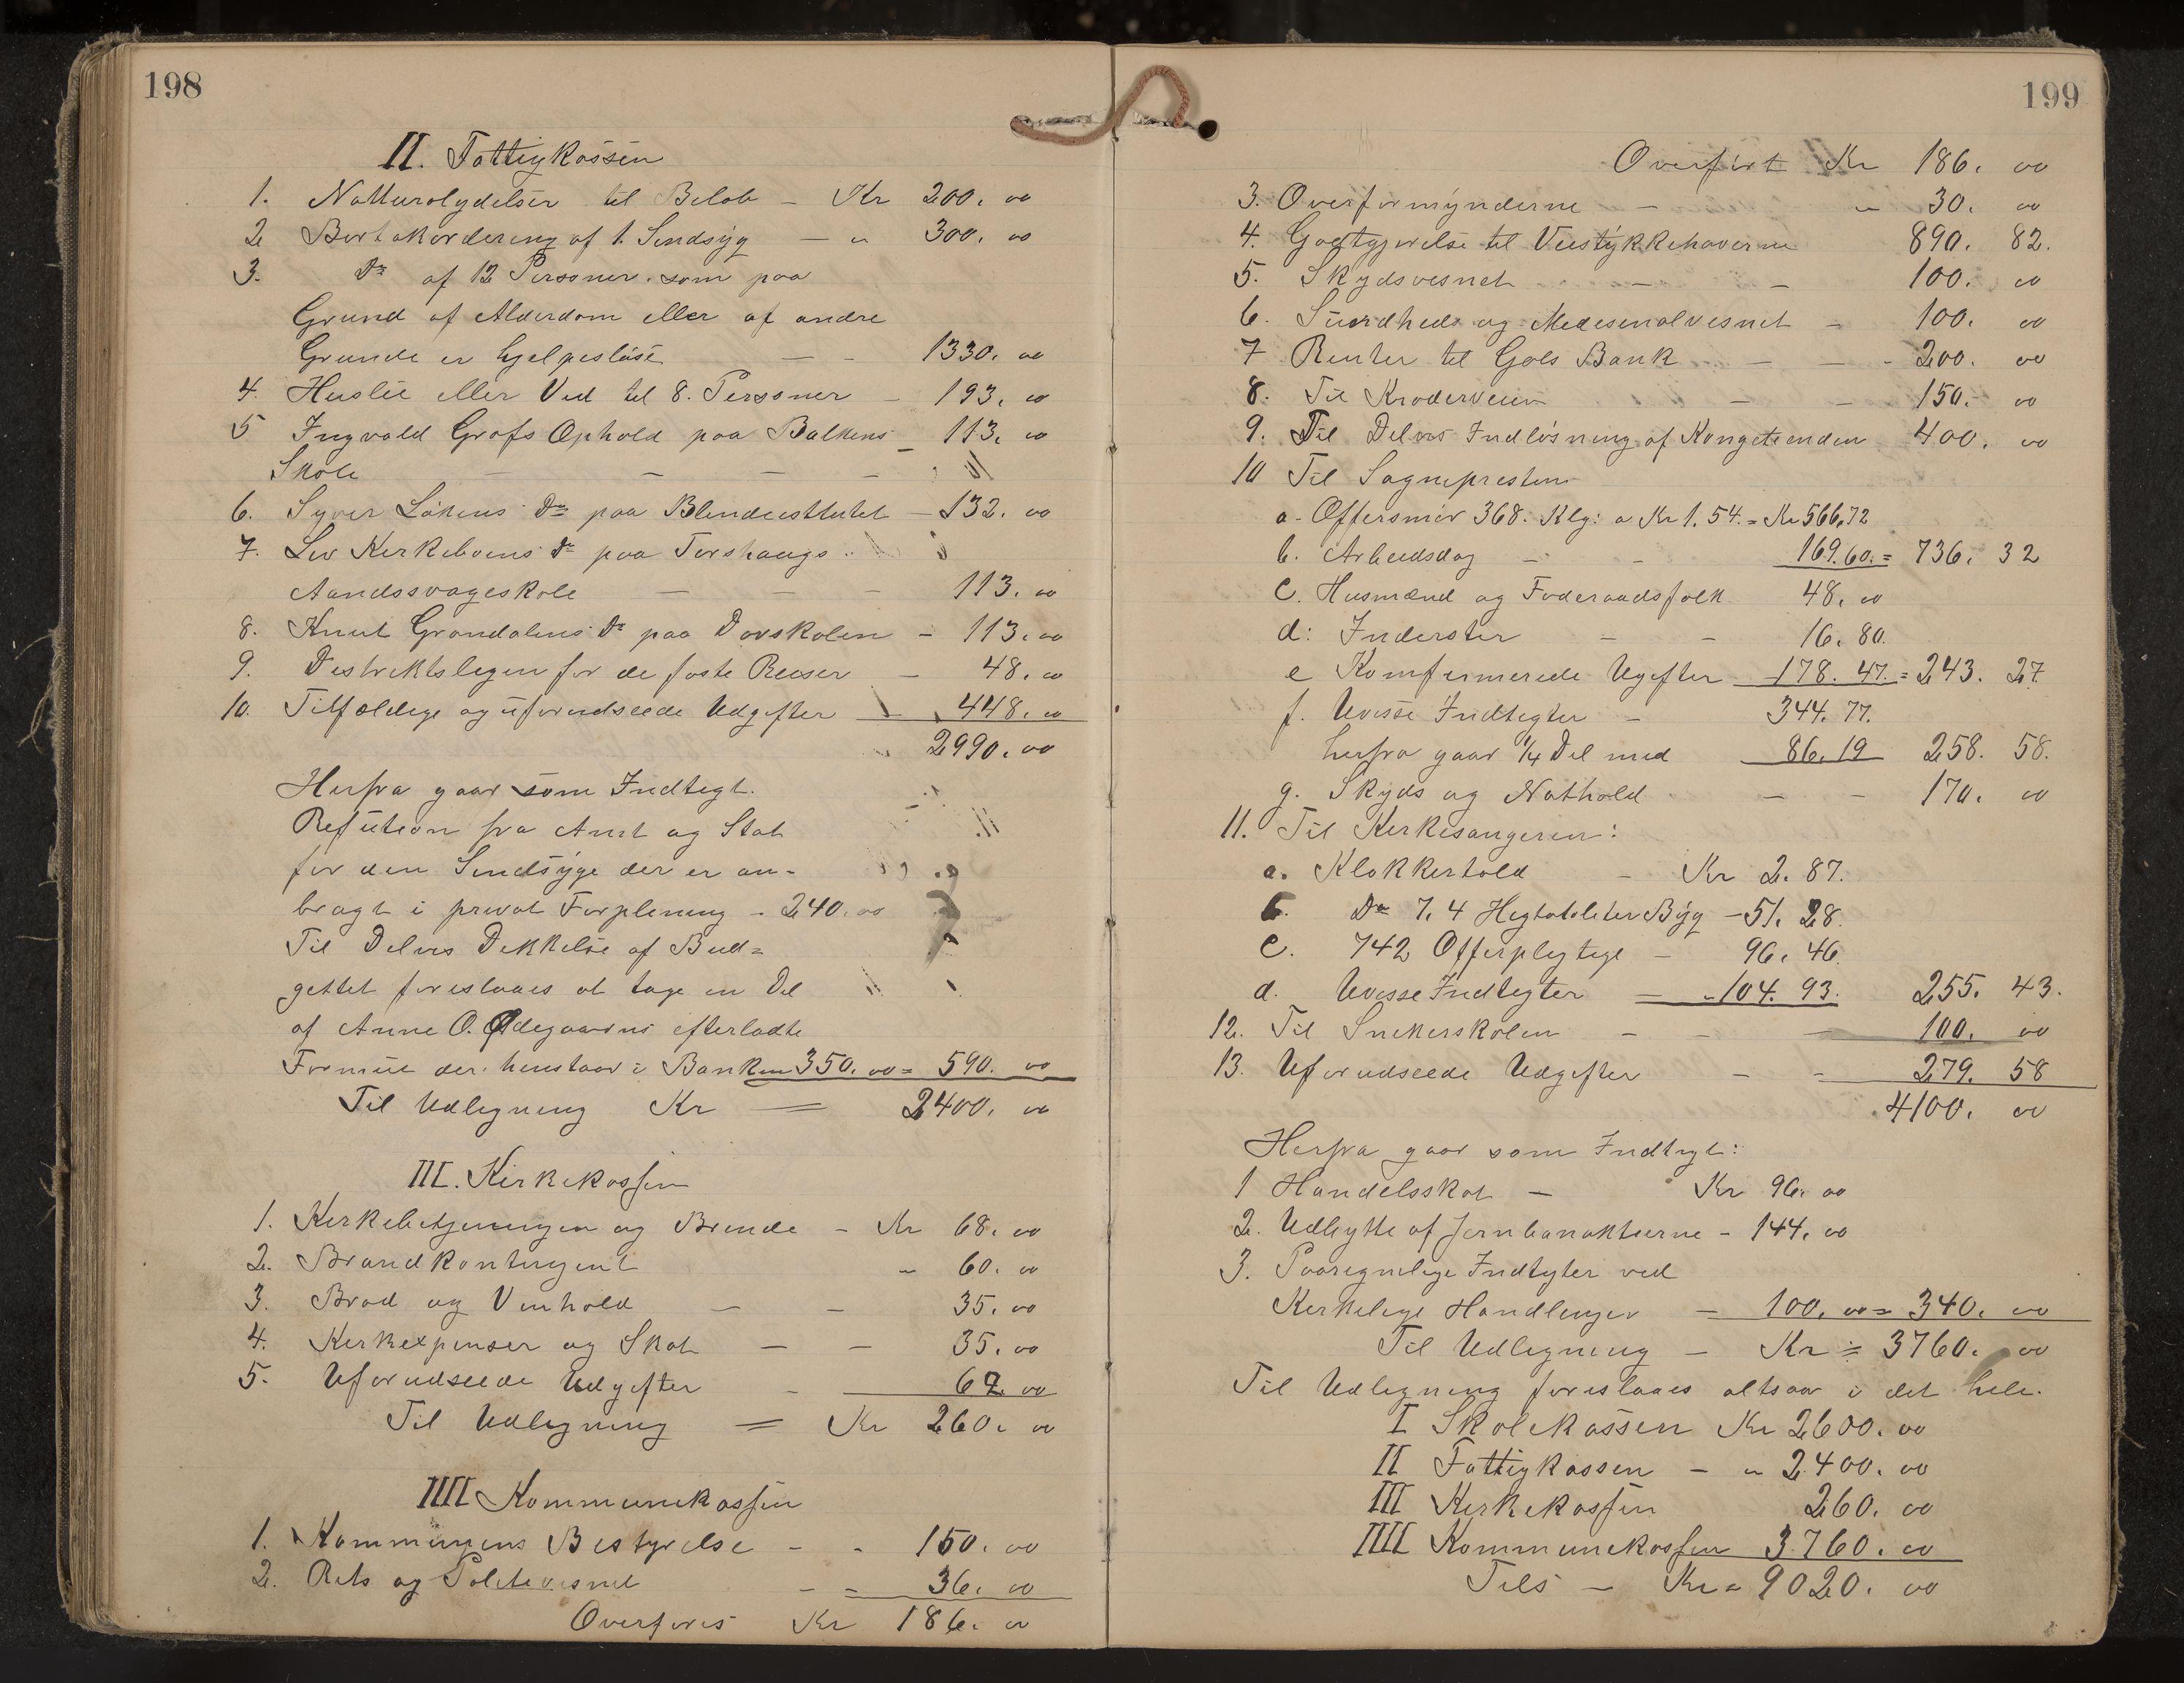 198
II. Fattigkassen
1. Natturalydelser til Beløb - Kr 200. 00
2 Bortakordering af 1. Sindsyg - " 300. 00
3. Do af 12 Personer. som paa
Grund af Alderdom eller af andre
Grunde er hjelpesløse - - 1330. 00
4. Huslie eller Ved til 8. Personer - 193. 00
5 Ingvald Grøfs Ophold paa Balkens - 113. 00
Skole - - - -
6. Syver Løkens Do paa Blendeisttutet - 132. 00
7. Lev Kerkeboens Do paa Torshaugs
Aandssvageskole - - - 113. 00
8. Knut Grøndalens Do paa Døvskolen - 113. 00
9. Destriktslegen for de faste Reiser - 48. 00
10. Tilfældige og uforudseede Udgifter - 448. 00
2990. 00
Herfra gaar som Indtegt.
Refution fra Amt og Stat
for den Sindsyge der er an-
bragt i privat Forpleining - 240. 00
Til Delvis Dekkelse af Bud=
gettet foreslaaes at tage en Del
af Anne O. Ødegaardns efterladte
Formue der henstaar i Banken 350. 00 = 590. 00
Til Udligning Kr = 2400. 00
III. Kirkekassen
1. Kerkebetjeningen og Brende - Kr 68. 00
2. Brandkontingent " 60. 00
3. Brød og Vinhold - - 35. 00
4. Kerkexpenser og Skat - - 35. 00
5. Uforudseede Udgifter - 62. 00
Til Udligning = Kr 260. 00
IIII Kommunekassen
1. Kommunens Bestyrelse - - 150. 00
2. Rets og Politivesnet - = 36. 00
Overføres Kr 186. 00
199
Overført Kr 186. 00
3. Overformynderne - " 30. 00
4. Godtgjørelse til Veistykkehaverne 890. 82.
5. Skydsvesnet - - 100. 00
6. Sundheds og Medesinalvesnet - 100. 00
7 Renter til Gols Bank - - - 200. 00
8. Til Krøderveien - - 150. 00
9. Til Delvis Indløsning af Kongetienden 400. 00
10 Til Sognepresten
a - Offersmør 368. Klg: a Kr 1. 54. = Kr 566,72
b. Arbeidsdag - - 169.60. = 736. 32
c. Husmænd og Foderaadsfolk 48. 00
d: Inderster - - 16. 80.
e Komfirmerede Ugifter 178. 47. = 243. 27
f. Uvisse Indtegter - 344. 77.
herfra gaar 1/4 Del med 86. 19 258. 58.
g. Skyds og Nathold - - 170. 00
11. Til Kerkesangeren:
a. Klokkertold - Kr 2. 87.
b. Do 7,4 Hegtoleter Byg - 51. 28.
c. 742 Offerplegtige - 96. 46.
d. Uvisse Indtegter = " 104. 93. 255. 43.
12. Til Snekerskolen - - - 100. 00
13. Uforudseede Udgifter - - 279. 58
4100. 00
Herfra gaar som Indtegt:
1 Handelsskat - Kr 96. 00
2. Udbytte af Jernbanaktierne - 144. 00
3. Paaregnelige Indtegter ved
Kerkelige Handlinger - 100. 00 = 340. 00
Til Udligning - Kr = 3760. 00
Til Udligning foreslaaes altsaa i det hele.
I Skolekassen Kr 2600. 00
II Fattigkassen - " 2400. 00
III Kerkekassen 260. 00
IIII Kommunekassen 3760. 00
Tils - Kr = 9020. 00